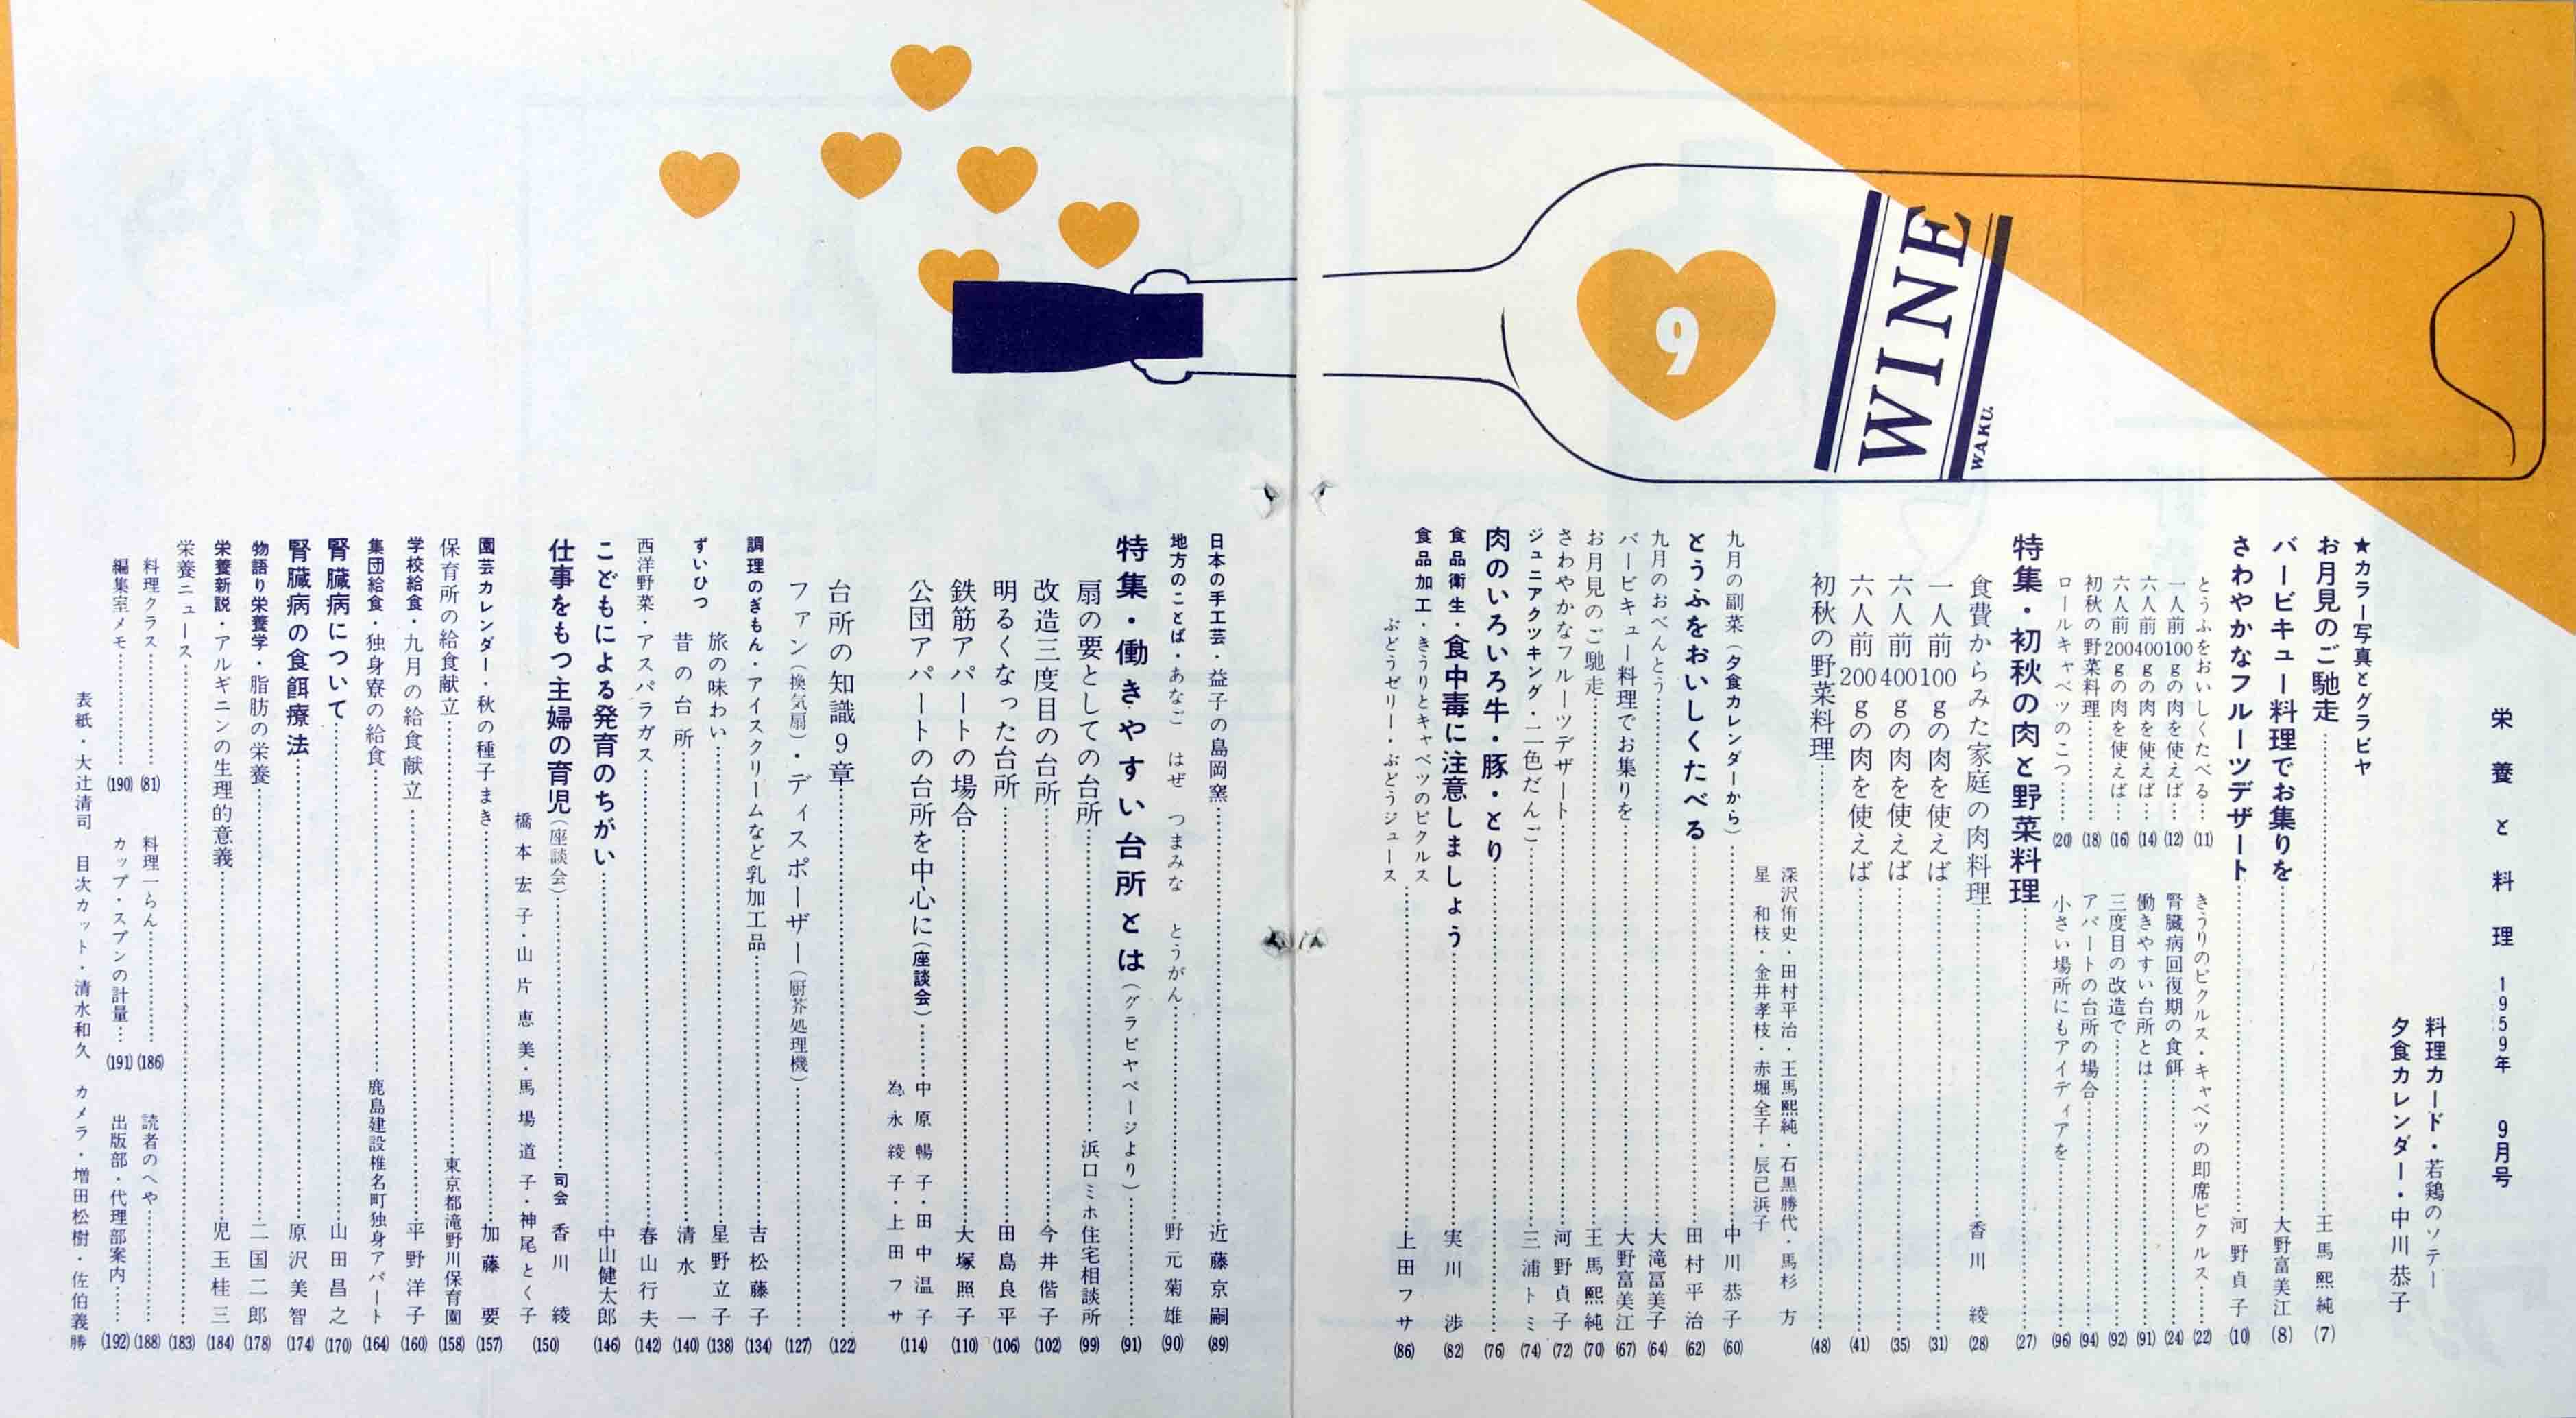 栄養と料理 1959年 9月号
料理カード・若鶏のソテー
夕食カレンダー・中川恭子
★カラー写真とグラビヤ
お月見のご馳走……王馬熙純(7)
バービキュー料理でお集りを……大野富美江(8)
さわやかなフルーツデザート……河野貞子(10)
とうふをおいしくたべる…(11)
一人前100gの肉を使えば…(12)
六人前400gの肉を使えば…(14)
六人前200gの肉を使えば…(16)
初秋の野菜料理……(18)
ロールキャベツのこつ……(20)
きうりのピクルス・キャベツの即席ピクルス……(22)
腎臓病回復期の食餌……(24)
働きやすい台所とは……(91)
三度目の改造で……(92)
アパートの台所の場合……(94)
小さい場所にもアイディアを……(96)
特集・初秋の肉と野菜料理……(27)
食費からみた家庭の肉料理……香川 綾(28)
一人前100gの肉を使えば……(31)
六人前400gの肉を使えば……(35)
六人前200gの肉を使えば……(41)
初秋の野菜料理……(48)
深沢侑史・田村平治・王馬熙純・石黒勝代・馬杉 方
星 和枝・金井孝枝・赤堀全子・辰己浜子
九月の副菜(夕食カレンダーから)……中川恭子(60)
とうふをおいしくたべる……田村平治(62)
九月のおべんとう……大滝冨美子(64)
バービキュー料理でお集りを……大野富美江(67)
お月見のご馳走……王馬熙純(70)
さわやかなフルーツデザート……河野貞子(72)
ジュニアクッキング・二色だんご……三浦トミ(74)
肉のいろいろ牛・豚・とり……(76)
食品衛生・食中毒に注意しましょう……実川 渉(82)
食品加工・きうりとキャベツのピクルス
ぶどうゼリー・ぶどうジュース……上田フサ(86)
9
WINE
WAKU.
日本の手工芸・益子の島岡窯……近藤京嗣(89)
地方のことば・あなご はぜ つまみな とうがん……野元菊雄(90)
特集・働きやすい台所とは(グラビヤページより)……(91)
扇の要としての台所……浜口ミホ住宅相談所(99)
改造三度目の台所……今井偕子(102)
明るくなった台所……田島良平(106)
鉄筋アパートの場合……大塚照子(110)
公団アパートの台所を中心に(座談会)……中原暢子・田中温子
為永綾子・上田フサ(114)
台所の知識9章……(122)
ファン(換気扇)・ディスポーザー(厨芥処理機)……(127)
調理のぎもん・アイスクリームなど乳加工品……吉松藤子(134)
ずいひつ
旅の味わい……星野立子(138)
昔の台所……清水 一(140)
西洋野菜・アスパラガス……春山行夫(142)
こどもによる発育のちがい……中山健太郎(146)
仕事をもつ主婦の育児(座談会)……司会 香川 綾
橋本宏子・山片恵美・馬場道子・神尾とく子(150)
園芸カレンダー・秋の種子まき……加藤 要(157)
保育所の給食献立……東京都滝野川保育園(158)
学校給食・九月の給食献立……平野洋子(160)
集団給食・独身寮の給食……鹿島建設椎名町独身アパート(164)
腎臓病について……山田昌之(170)
腎臓病の食餌療法……原沢美智(174)
物語り栄養学・脂肪の栄養……二国二郎(178)
栄養新説・アルギニンの生理的意義……児玉桂三(184)
栄養ニュース……(183)
料理クラス……(81)
料理一らん……(186)
読者のへや……(188)
編集室メモ……(190)
カップ・スプンの計量…(191)
出版部・代理部案内……(192)
表紙・大辻清司 目次カット・清水和久 カメラ・増田松樹・佐伯義勝